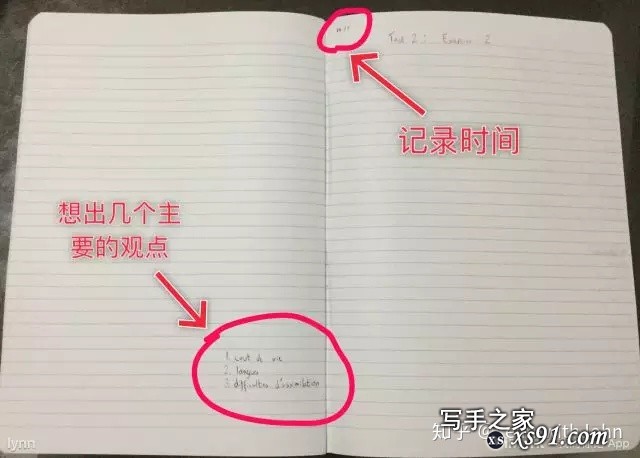 Task 2: Exercise 2
记录时间
想出几个主
要的观点
1. cout de vie
2. langues
3. difficultés d'assimilation
lynn
知乎
写手之家
xs
xs91.com